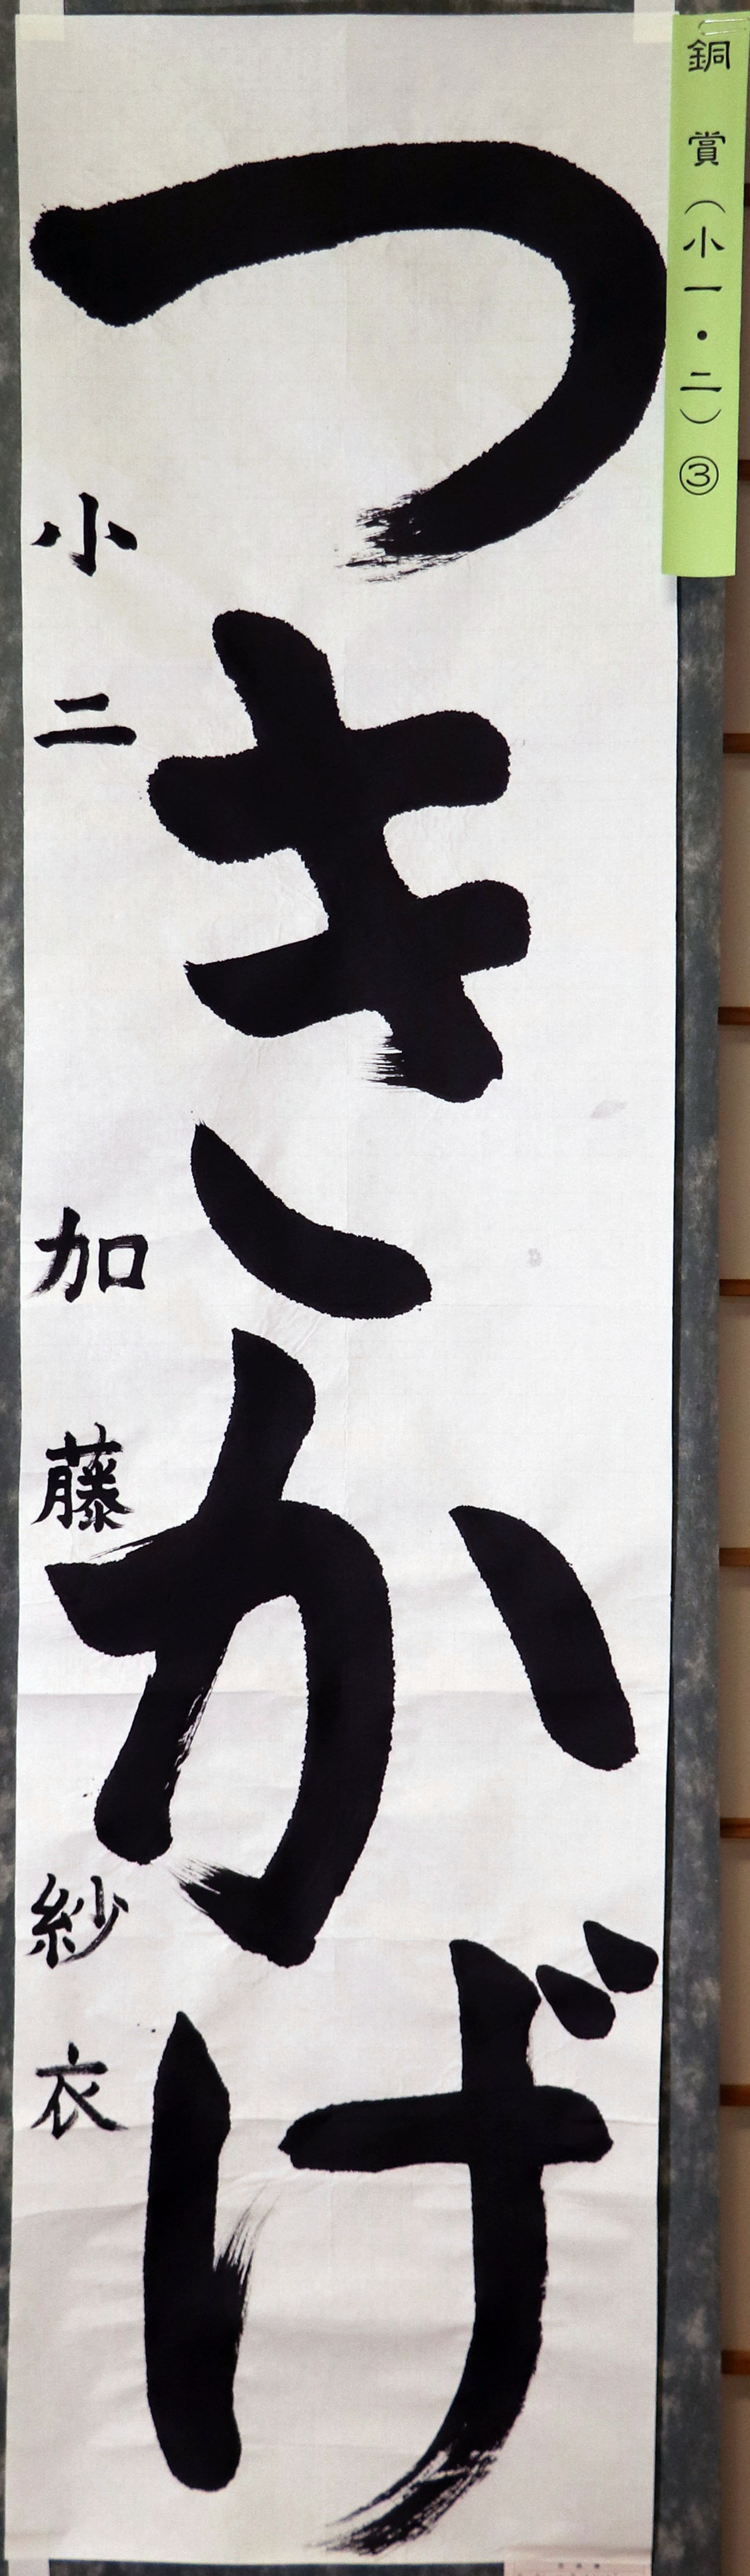 銅賞（小一・二）③
つきかげ
小二 加藤紗衣